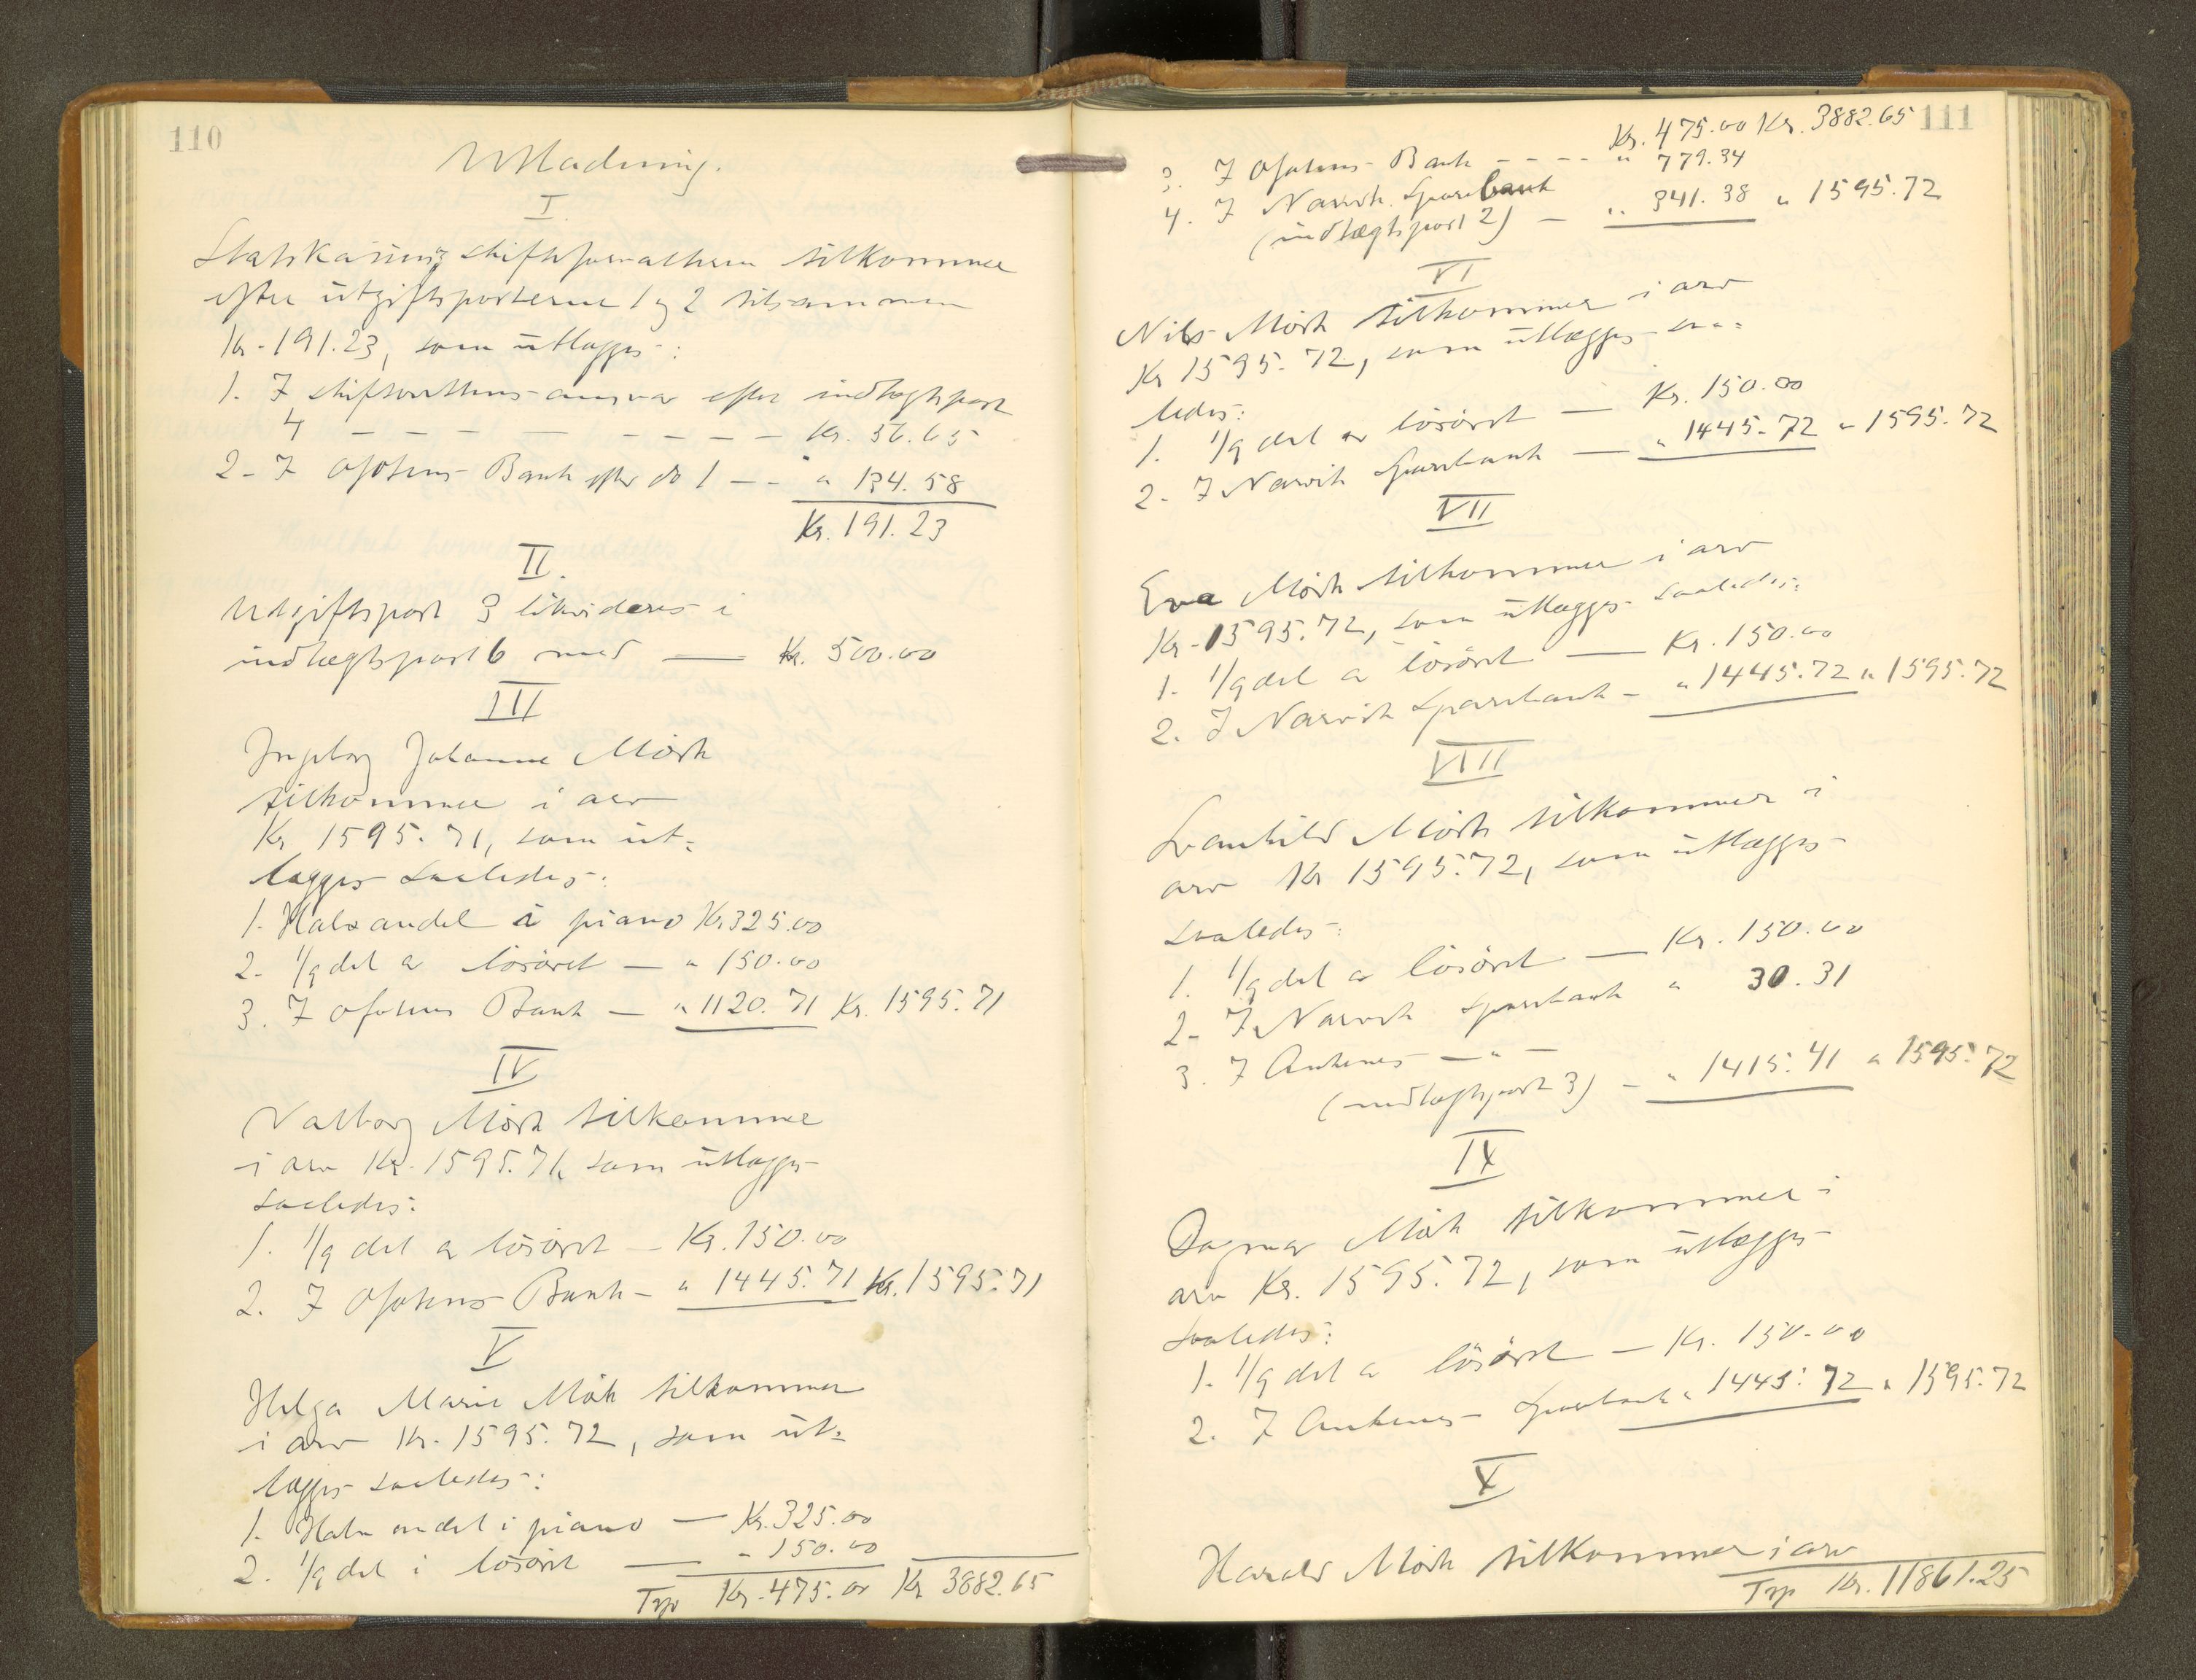 110
Utlodning.
I.
Statskassens skifteforvalteren tilkommer
efter utgiftsposterne 1 og 2 tilsammen
Kr. 191.23, som utlægges:
1. I skifterettens ansvar efter indtægtspost
4 - - - - - - - - - Kr. 56.65
2. I Ofotens Bank efter do 1 - - " 134.58
Kr. 191.23
II.
Utgiftspost 3 likvideres i
indtægtspost 6 med — Kr. 500.00
III
Ingeborg Johanne Mörk
tilkommer i arv
Kr 1595.71, som ut-
lægges saaledes:
1. Halv andel i piano Kr. 325.00
2. 1/9 del av lösöret — " 150.00
3. I Ofotens Bank — " 1120.71 Kr. 1595.71
IV
Valborg Mörk tilkommer
i arv Kr. 1595.71, som utlægges
saaledes:
1. 1/9 del av lösöret — Kr. 150.00
2. I Ofotens Bank — " 1445.71 Kr. 1595.71
V
Helga Marie Mörk tilkommer
i arv Kr. 1595.72, som ut-
lægges saaledes:
1. Halv andel i piano — Kr. 325.00
2. 1/9 del i lösöret — " 150.00
Trp Kr. 475.00 Kr 3882.65
111
Kr. 475.00 Kr. 3882.65
3. I Ofotens Bank - - - - " 779.34
4. I Narvik Sparebank
(indtægtspost 2) — " 341.38 " 1595.72
VI
Nils Mörk tilkommer i arv
Kr 1595.72, som utlægges saa-
ledes:
1. 1/9 del av lösöret — Kr. 150.00
2. I Narvik Sparebank — " 1445.72 " 1595.72
VII
Eva Mörk tilkommer i arv
Kr. 1595.72, som utlægges saaledes:
1. 1/9 del av lösöret — Kr. 150.00
2. I Narvik Sparebank — " 1445.72 " 1595.72
VIII
Svanhild Mörk tilkommer i
arv Kr 1595.72, som utlægges
saaledes:
1. 1/9 del av lösöret — Kr. 150.00
2. I Narvik Sparebank " 30.31
3. I Ankenes — " —
(indtægtspost 3) — " 1415.41 " 1595.72
IX
Dagmar Mörk tilkommer i
arv Kr. 1595.72, som utlægges
saaledes:
1. 1/9 del av lösöret — Kr. 150.00
2. I Ankenes Sparebank " 1445.72 " 1595.72
X
Harald Mörk tilkommer i arv
Trp Kr. 11861.25